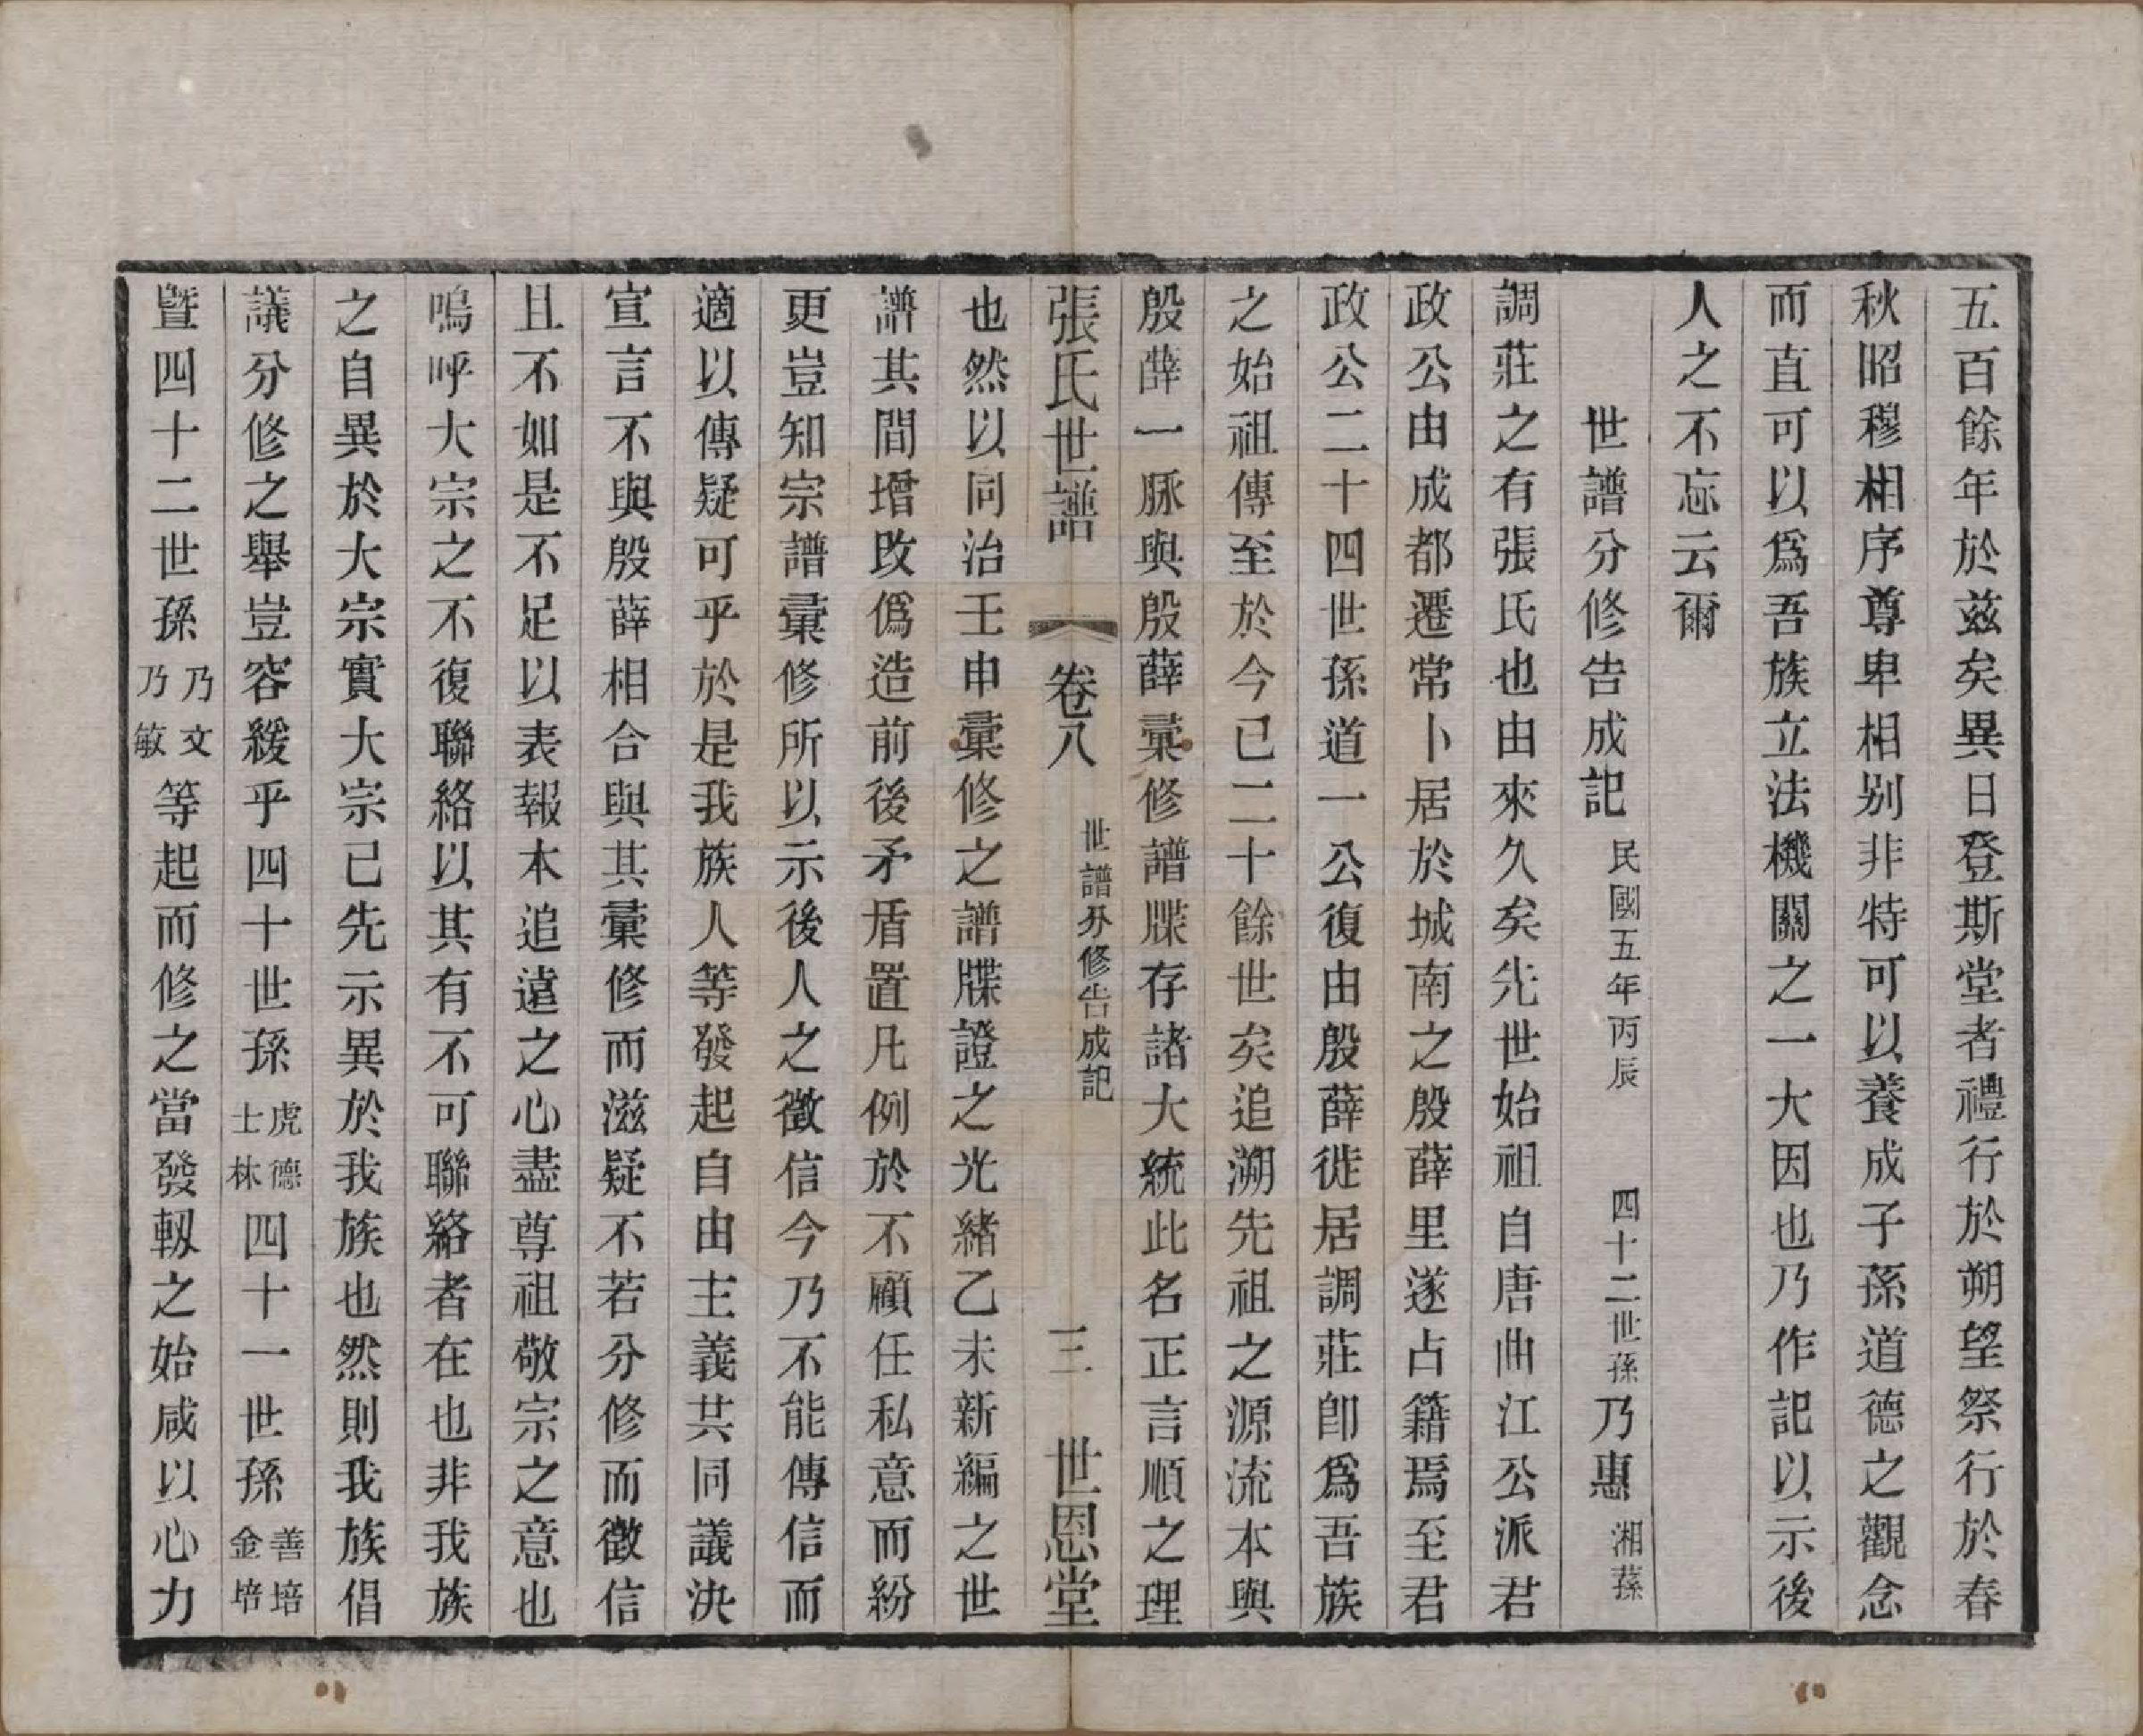 五百餘年於兹矣異日登斯堂者禮行於朔望祭行於春
秋昭穆相序尊卑相别非特可以養成子孫道德之觀念
而直可以爲吾族立法機關之一大因也乃作記以示後
人之不忘云爾
世譜分修告成記 民國五年丙辰 四十二世孫 乃惠 湘蓀
調莊之有張氏也由來久矣先世始祖自唐曲江公派君
政公由成都遷常卜居於城南之殷薛里遂占籍焉至君
政公二十四世孫道一公復由殷薛徙居調莊卽爲吾族
之始祖傳至於今已二十餘世矣追溯先祖之源流本與
殷薛一脉與殷薛彙修譜牒存諸大統此名正言順之理
張氏世譜 卷八 世譜分修告成記 三 世恩堂
也然以同治壬申彙修之譜牒證之光緒乙未新編之世
譜其間增改僞造前後矛盾置凡例於不顧任私意而紛
更豈知宗譜彙修所以示後人之徵信今乃不能傳信而
適以傳疑可乎於是我族人等發起自由主義共同議決
宣言不與殷薛相合與其彙修而滋疑不若分修而徵信
且不如是不足以表報本追遠之心盡尊祖敬宗之意也
嗚呼大宗之不復聯絡以其有不可聯絡者在也非我族
之自異於大宗實大宗已先示異於我族也然則我族倡
議分修之舉豈容緩乎四十世孫虎德士林四十一世孫善培金培
暨四十二世孫乃文乃敏等起而修之當發軔之始咸以心力